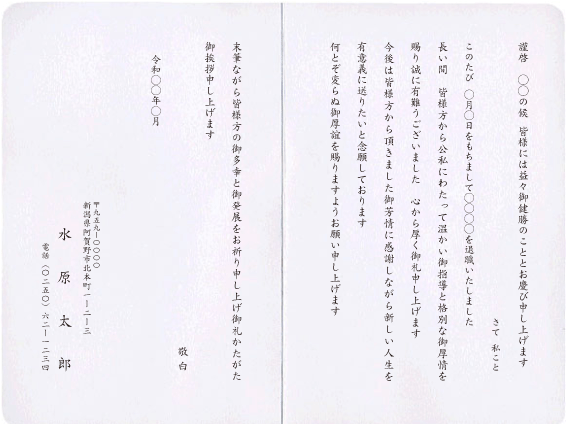 謹啓　〇〇の候　皆様には益々御健勝のこととお慶び申し上げます
さて　私こと
このたび　〇月〇日をもちまして〇〇〇〇を退職いたしました
長い間　皆様方から公私にわたって温かい御指導と格別な御厚情を
賜り誠に有難うございました　心から厚く御礼申し上げます
今後は皆様方から頂きました御芳情に感謝しながら新しい人生を
有意義に送りたいと念願しております
何とぞ変らぬ御厚誼を賜りますようお願い申し上げます
末筆ながら皆様方の御多幸と御発展をお祈り申し上げ御礼かたがた
御挨拶申し上げます
敬白
令和〇〇年〇月
〒九五九-〇〇〇〇
新潟県阿賀野市北本町一ー二ー三
水原太郎
電話（〇二五〇）六二ー一二三四